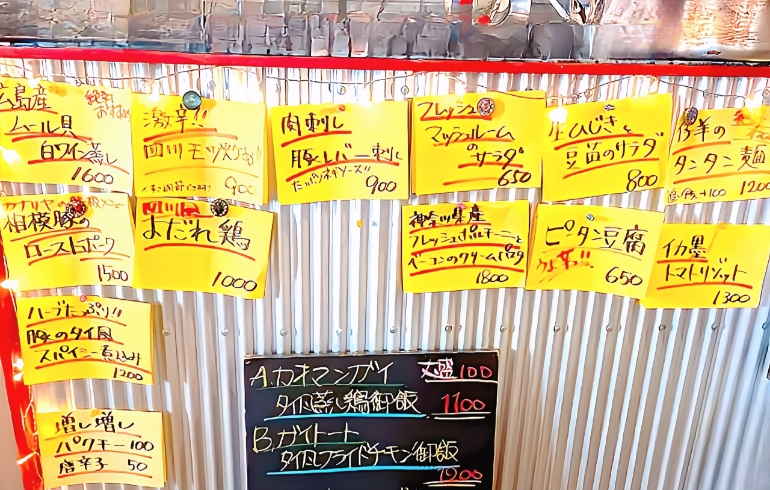 広島産
ムール貝
白ワイン蒸し
1600
激辛!!
四川モツ炒め!!
900
肉刺し
豚レバー刺し
たっぷりネギソース!!
900
フレッシュ
マッシュルーム
の
サラダ
650
生ひじきと
豆苗のサラダ
800
羊の
タンタン麺
1200
相模豚の
ローストポーク
1500
四川風
よだれ鶏
1000
神奈川県産
フレッシュポルチーニと
ベーコンのクリームパスタ
1800
ピータン豆腐
650
イカ墨
トマトリゾット
1300
ハーブたっぷり!!
豚のタイ風
スパイシー煮込み
1200
増し増し
パクチー100
唐辛子 50
A.カオマンガイ 大盛100
タイ風蒸し鶏御飯
1100
B.ガイトート
タイ風フライドチキン御飯
1200